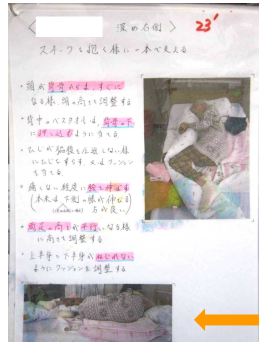 〈 深め右側 〉 23'
スネークを抱く様に一本で支える
・頭が背骨からまっすぐに
なる様、頭の高さで調整する
・背中のバスタオルは、背骨の下
に押し込むように当てる
・ひじが脇腹を圧迫しない様
にひじをずらす、又はクッション
を当てる
・痛くない程度に腕を伸ばす
方が良い
・両足の高さが平行になる様
に高さを調整する
・上半身と下半身がねじれない
ようにクッションを調整する